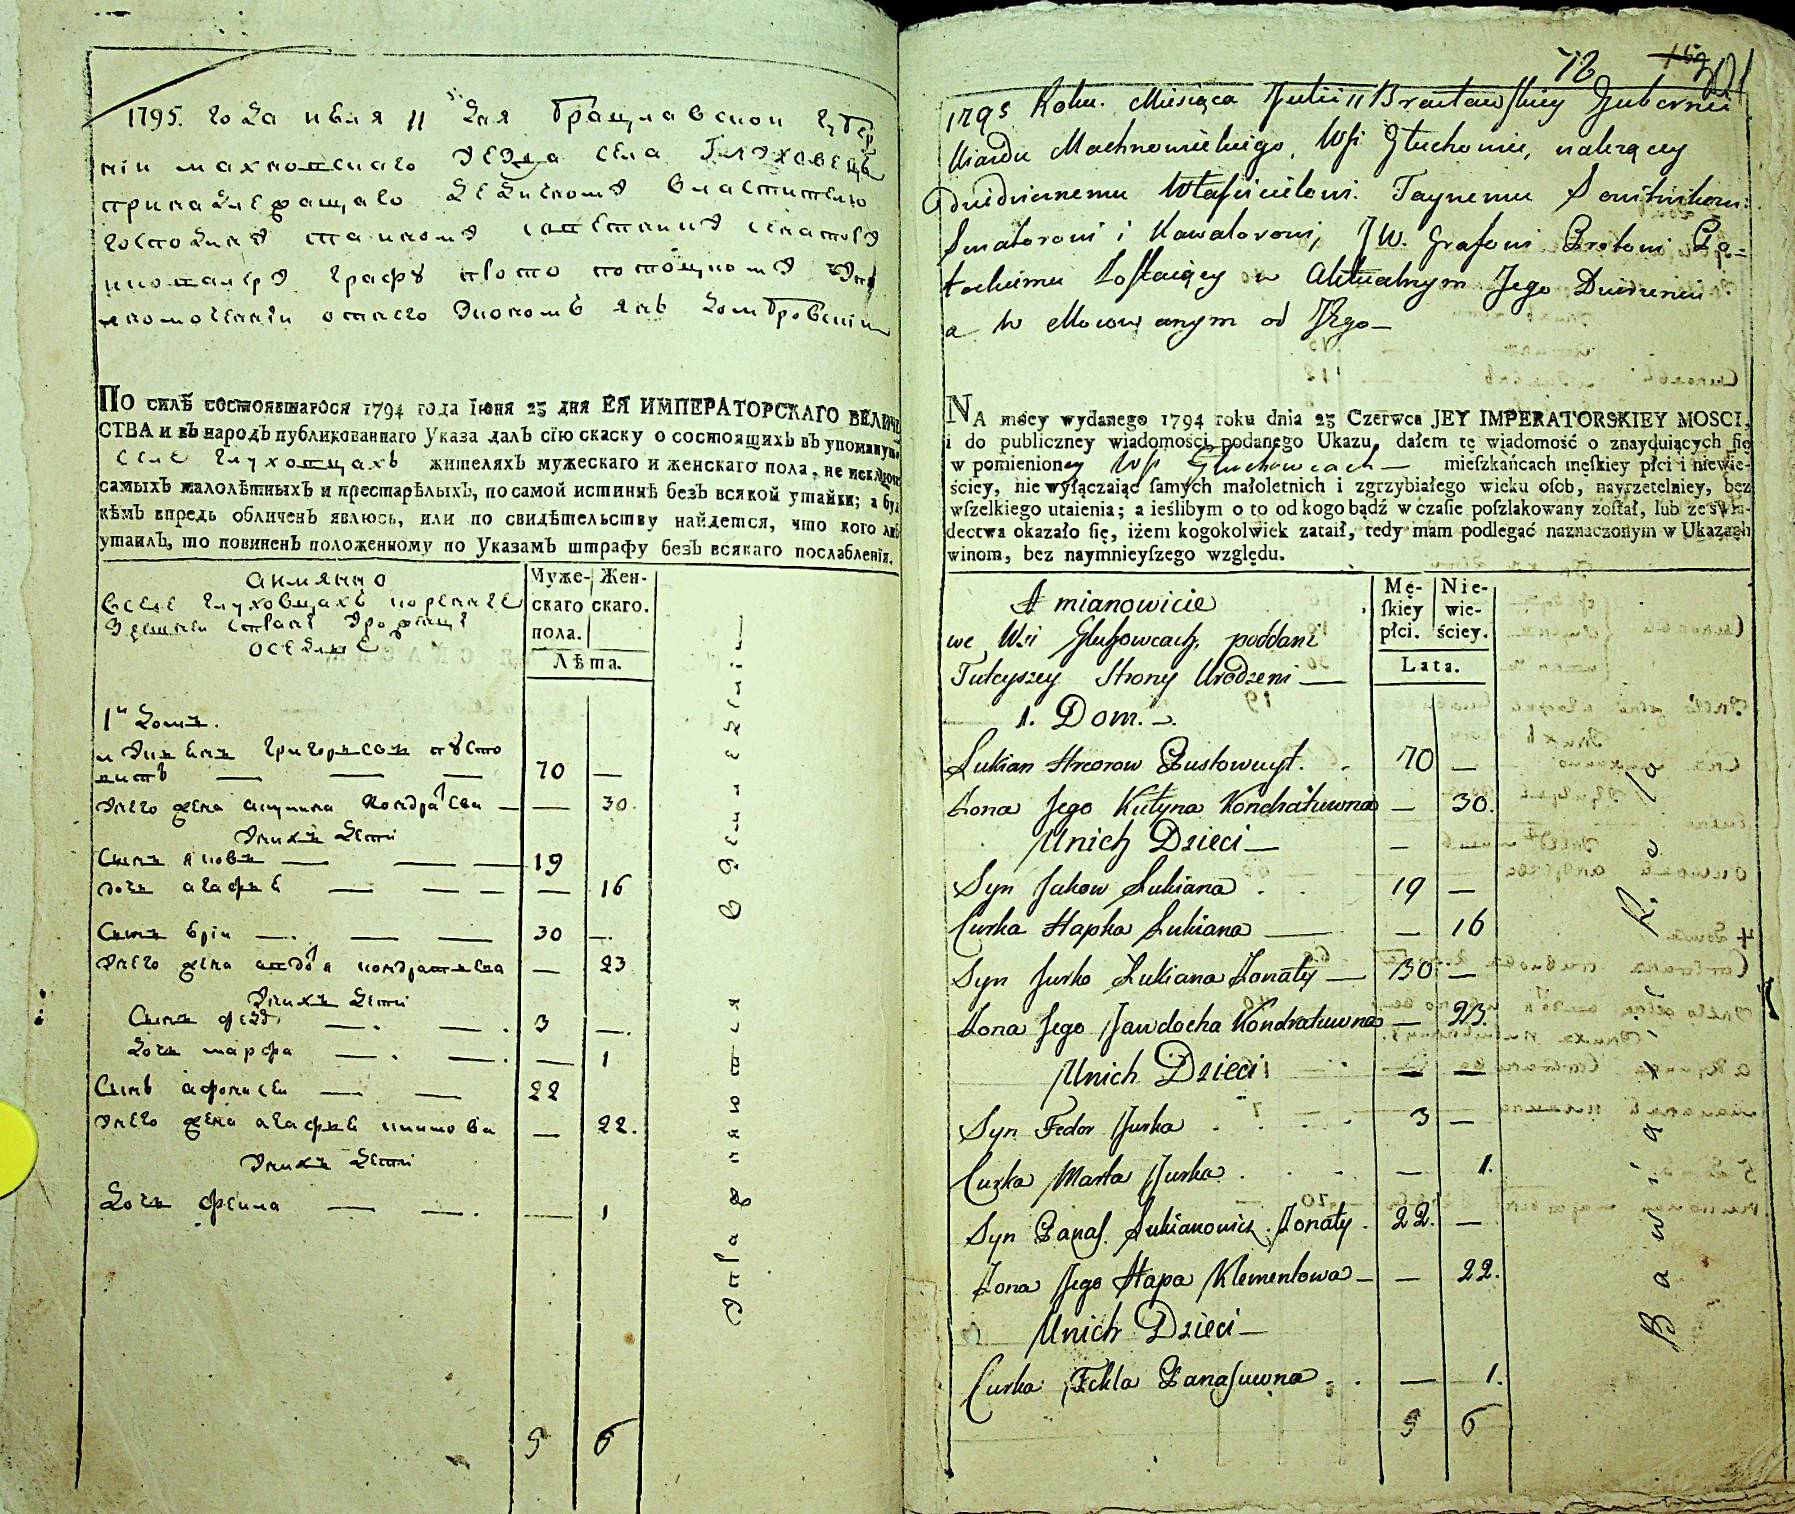 1795. года июля 11 дня Брацлавской губер
ніи махновскаго уезда села Глуховецъ
принадлежащаго дедичному властителю
господину тайному советнику сенатору
и кавалеру графу прото потоцкому
от него економъ янъ домбровскій
По силѣ состоявшагося 1794 года Іюня 23 дня ЕЯ ИМПЕРАТОРСКАГО ВЕЛИЧЕ
СТВА и въ народъ публикованнаго Указа далъ сїю скаску о состоящихъ въ упомянуто
селе глуховцахъ жителяхъ мужескаго и женскаго пола, не исключ
самыхъ малолѣтныхъ и престарѣлыхъ, по самой истиннѣ безъ всякой утайки; а буд
кѣмъ впредь обличенъ явлюсь, или по свидѣтельству найдется, что кого ли
утаилъ, то повиненъ положенному по Указамъ штрафу безъ всякаго послабленїя.
аимянно
Муже- Жен-
скаго скаго.
пола.
Лѣта.
вселе глуховцахъ
1й домъ.
григорьевъ пусто
витъ — — — 70 —
унего жена Кондратьева — — 30.
унихъ дети
Сынъ яковъ — — — 19
дочь агафия — — — — 16
Сынъ юрій — — — 30 —.
унего жена авдотя кондратьева — 23
унихъ дети
Сынъ федоръ — — 3 —.
дочь марфа — — — 1
Сынъ афонасей — — 22
унего жена агафия — 22.
унихъ дети
дочь фекла — — — 1
9 6
72
1795 Roku. Miesiąca Julii 11 Bracławskiey Gubernii
Uiazdu Machnowieckiego, Wsi Głuchowiec, należącey
Dziedzicznemu Właścicielowi. Taynemu Sowitnikowi
Senatorowi i Kawalerowi, JW. Grafowi Protowi Po-
tockiemu Zostaiącey w Aktualnym Jego Dzierżeniu
a W Mocowanym od Jego —
NA mocy wydanego 1794 roku dnia 23 Czerwca JEY IMPERATORSKIEY MOSCI,
i do publiczney wiadomości podanego Ukazu, dałem tę wiadomość o znayduiących ſię
w pomienioney Wsi Głuchowcach — mieſzkańcach męſkiey płci i niewie-
ściey, nie wyłączaiąc ſamych małoletnich i zgrzybiałego wieku oſob, nayrzetelniey, bez
wſzelkiego utaienia; a ieślibym o to od kogo bądź w czaſie poſzlakowany zoſtał, lub ze świa-
dectwa okazało ſię, iżem kogokolwiek zataił, tedy mam podlegać naznaczonym w Ukazach
winom, bez naymnieyſzego względu.
A mianowicie
Mę-
ſkiey
płci.
Nie-
wie-
ściey.
Lata.
we Wsi Głuchowcach, poddani
Tuteyszey Strony Urodzeni —
1. Dom. —
Lukian Hreorow Pustowuyt. 70 —
Żona Jego Kulyna Kondratuwna — 30.
Unich Dzieci — —
Syn Jakow Lukiana . . 19 —
Curka Hapka Lukiana — — 16
Syn Jurko Lukiana Żonaty — 30 —
Żona Jego Jawdocha Kondratuwna — 23.
Unich Dzieci — —
Syn Fedor Jurka . . . 3 —
Curka Marta Jurka . . — 1.
Syn Panas. Lukianowicz. Żonaty . 22. —
Żona Jego Hapa Klementowa — — 22.
Unich Dzieci —
Curka Fekla Panasuwna . . — 1.
9 6